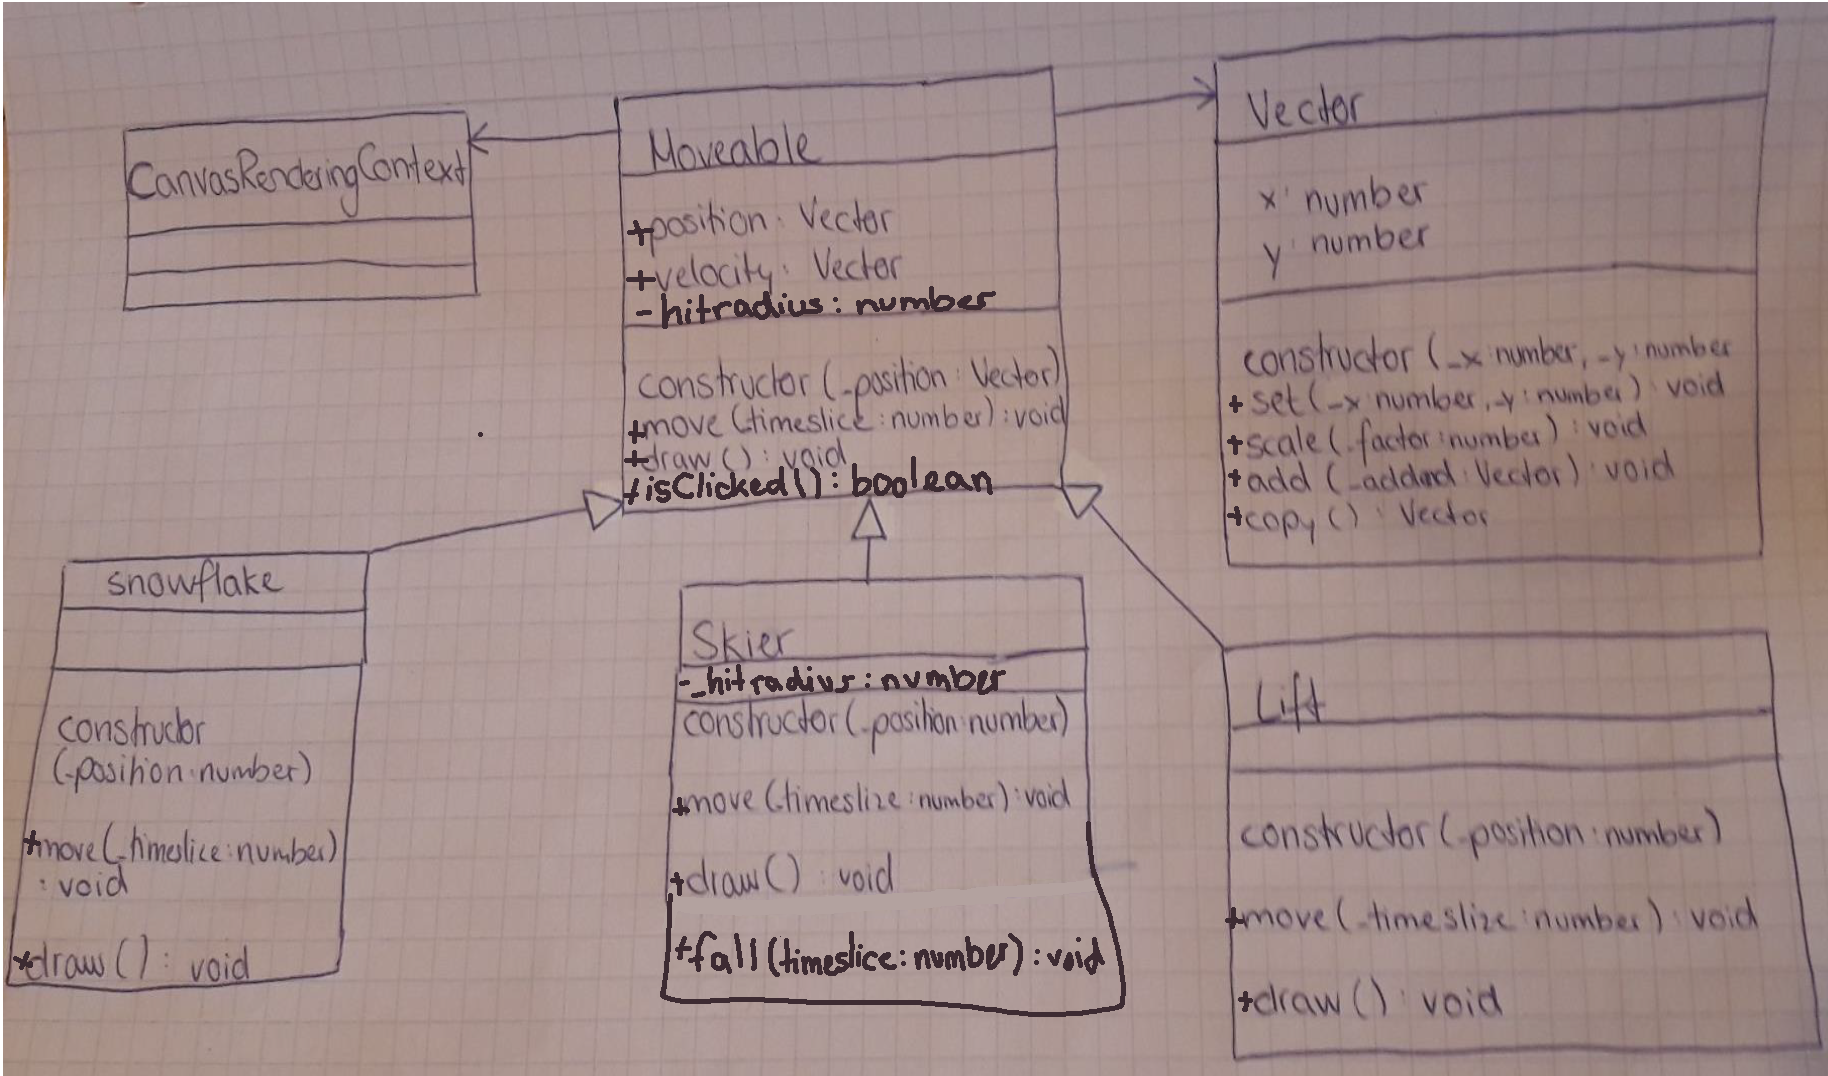 CanvasRenderingContext
Moveable
+position: Vector
+velocity: Vector
-hitradius: number
constructor (_position: Vector)
+move (timeslice: number): void
+draw(): void
+isClicked(): boolean
Vector
x: number
y: number
constructor (_x: number, _y: number
+ set(_x: number, _y: number): void
+scale(_factor: number): void
+add (_addend: Vector): void
+copy(): Vector
snowflake
constructor
(_position: number)
+move(_timeslice: number)
: void
+draw(): void
Skier
-_hitradius: number
constructor(_position: number)
+move (_timeslize: number): void
+draw(): void
+fall(timeslice: number): void
Lift
constructor(_position: number)
+move(_timeslize: number): void
+draw(): void